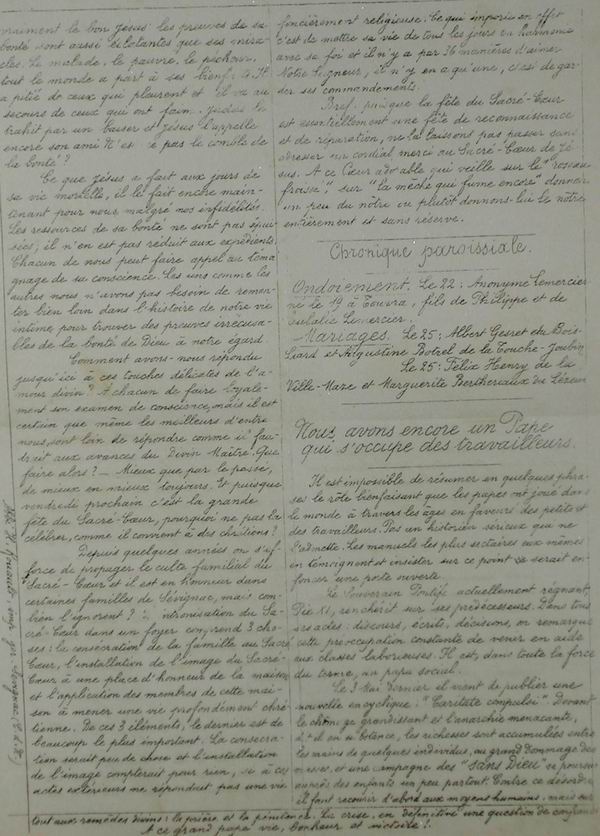 vraiment le bon Jésus: les preuves de sa
bonté sont aussi éclatantes que ses mira-
cles. Le malade, le pauvre, le pécheur,
tout le monde a part à ses
a pitié de ceux qui pleurent et il va au
secours de ceux qui ont faim. Judas le
trahit par un baiser et Jésus l'appelle
encore son ami. N'est-ce pas le comble de
la bonté?
Ce que Jésus a fait aux jours de
sa vie mortelle, il le fait encore main-
tenant pour nous, malgré nos infidélités.
Les ressources de sa bonté ne sont pas épui-
sées; il n'en est pas réduit aux expédients.
Chacun de nous peut faire appel au témoi-
gnage de sa conscience. Les uns comme les
autres nous n'avons pas besoin de remon-
ter bien loin dans l'histoire de notre vie
intime pour trouver des preuves irrécusa-
bles de la bonté de Dieu à notre égard.
Comment avons-nous répondu
jusqu'ici à ces touches délicates de l'a-
mour divin? A chacun de faire loyale-
ment son examen de conscience, mais il est
certain que même les meilleurs d'entre
nous, sont loin de répondre comme il fau-
trait aux avances du Divin Maître. Que
faire alors? — Mieux que par le passé,
de mieux en mieux toujours. Et puisque
vendredi prochain c'est la grande
fête du Sacré-Cœur, pourquoi ne pas la
célébrer, comme il convient à des chrétiens?
Depuis quelques années on s'ef-
force de propager le culte familial du
Sacré-Cœur et il est en honneur dans
certaines familles de Sévignac, mais com-
bien l'ignorent? L'intronisation du Sa-
cré-Cœur dans un foyer comprend 3 cho-
ses: la consécration de la famille au Sacré
Cœur, l'installation de l'image du Sacré-
Cœur à une place d'honneur de la maison
et l'application des membres de cette mai-
son à mener une vie profondément chré-
tienne. De ces 3 éléments, le dernier est de
beaucoup le plus important. La consécra-
tion serait peu de chose et l'installation
de l'image compterait pour rien, si à ces
actes extérieurs ne répondait pas une vie
foncièrement religieuse. Ce qui importe en effet
c'est de mettre sa vie de tous les jours en harmonie
avec sa foi et il n'y a pas 36 manières d'aimer
Notre Seigneur, il n'y en a qu'une, c'est de gar-
der ses commandements.
Bref, puisque la fête du Sacré-Cœur
est essentiellement une fête de reconnaissance
et de réparation, ne la laissons pas passer sans
adresser un cordial merci au Sacré-Cœur de Jé-
sus. A ce Cœur adorable qui veille sur le "roseau
froissé" sur "la mèche qui fume encore" donnons
un peu du nôtre ou plutôt donnons-lui le nôtre
entièrement et sans réserve.
Chronique paroissiale.
Ondoiement. Le 22: Anonyme Lemercier
né le 19 à Couvra, fils de Philippe et de
Eulalie Lemercier.
Mariages. Le 25; Albert Gesret du Bois-
Liard et Augustine Botrel de la Touche-Joubin
Le 25: Félix Henry de la
Ville-Maze et Marguerite Bertheraux du
Nous avons encore un Pape
qui s'occupe des travailleurs.
Il est impossible de résumer en quelques phra-
ses le rôle bienfaisant que les papes ont joué dans
le monde à travers les âges en faveurs des petits et
des travailleurs. Pas un historien sérieux qui ne
l'admette. Les manuels les plus sectaires eux-mêmes
en témoignent et insister sur ce point ce serait en-
foncer une porte ouverte.
Le Souverain Pontife actuellement régnant,
Pie XI, renchérit sur ses prédécesseurs. Dans tous
ses actes: discours, écrits, décisions, on remarque
cette préoccupation constante de venir en aide
aux classes laborieuses. Il est, dans toute la force
du terme, un pape social.
Le 3 Mai dernier il vient de publier une
nouvelle encyclique: "Caritate compulsi". Devant
le chômage grandissant et l'anarchie menaçante,
les richesses sont accumulées entre
les mains de quelques individus, au grand dommage des
masses, et une campagne des "sans Dieu" se poursuit
auprès des enfants un peu partout. Contre ce désordre
il faut recourir d'abord aux moyens humains, mais sur-
tout aux remèdes divins: la prière et la pénitence. La crise, en définitive une question de confiance
A ce grand pape vie, bonheur et victoire!